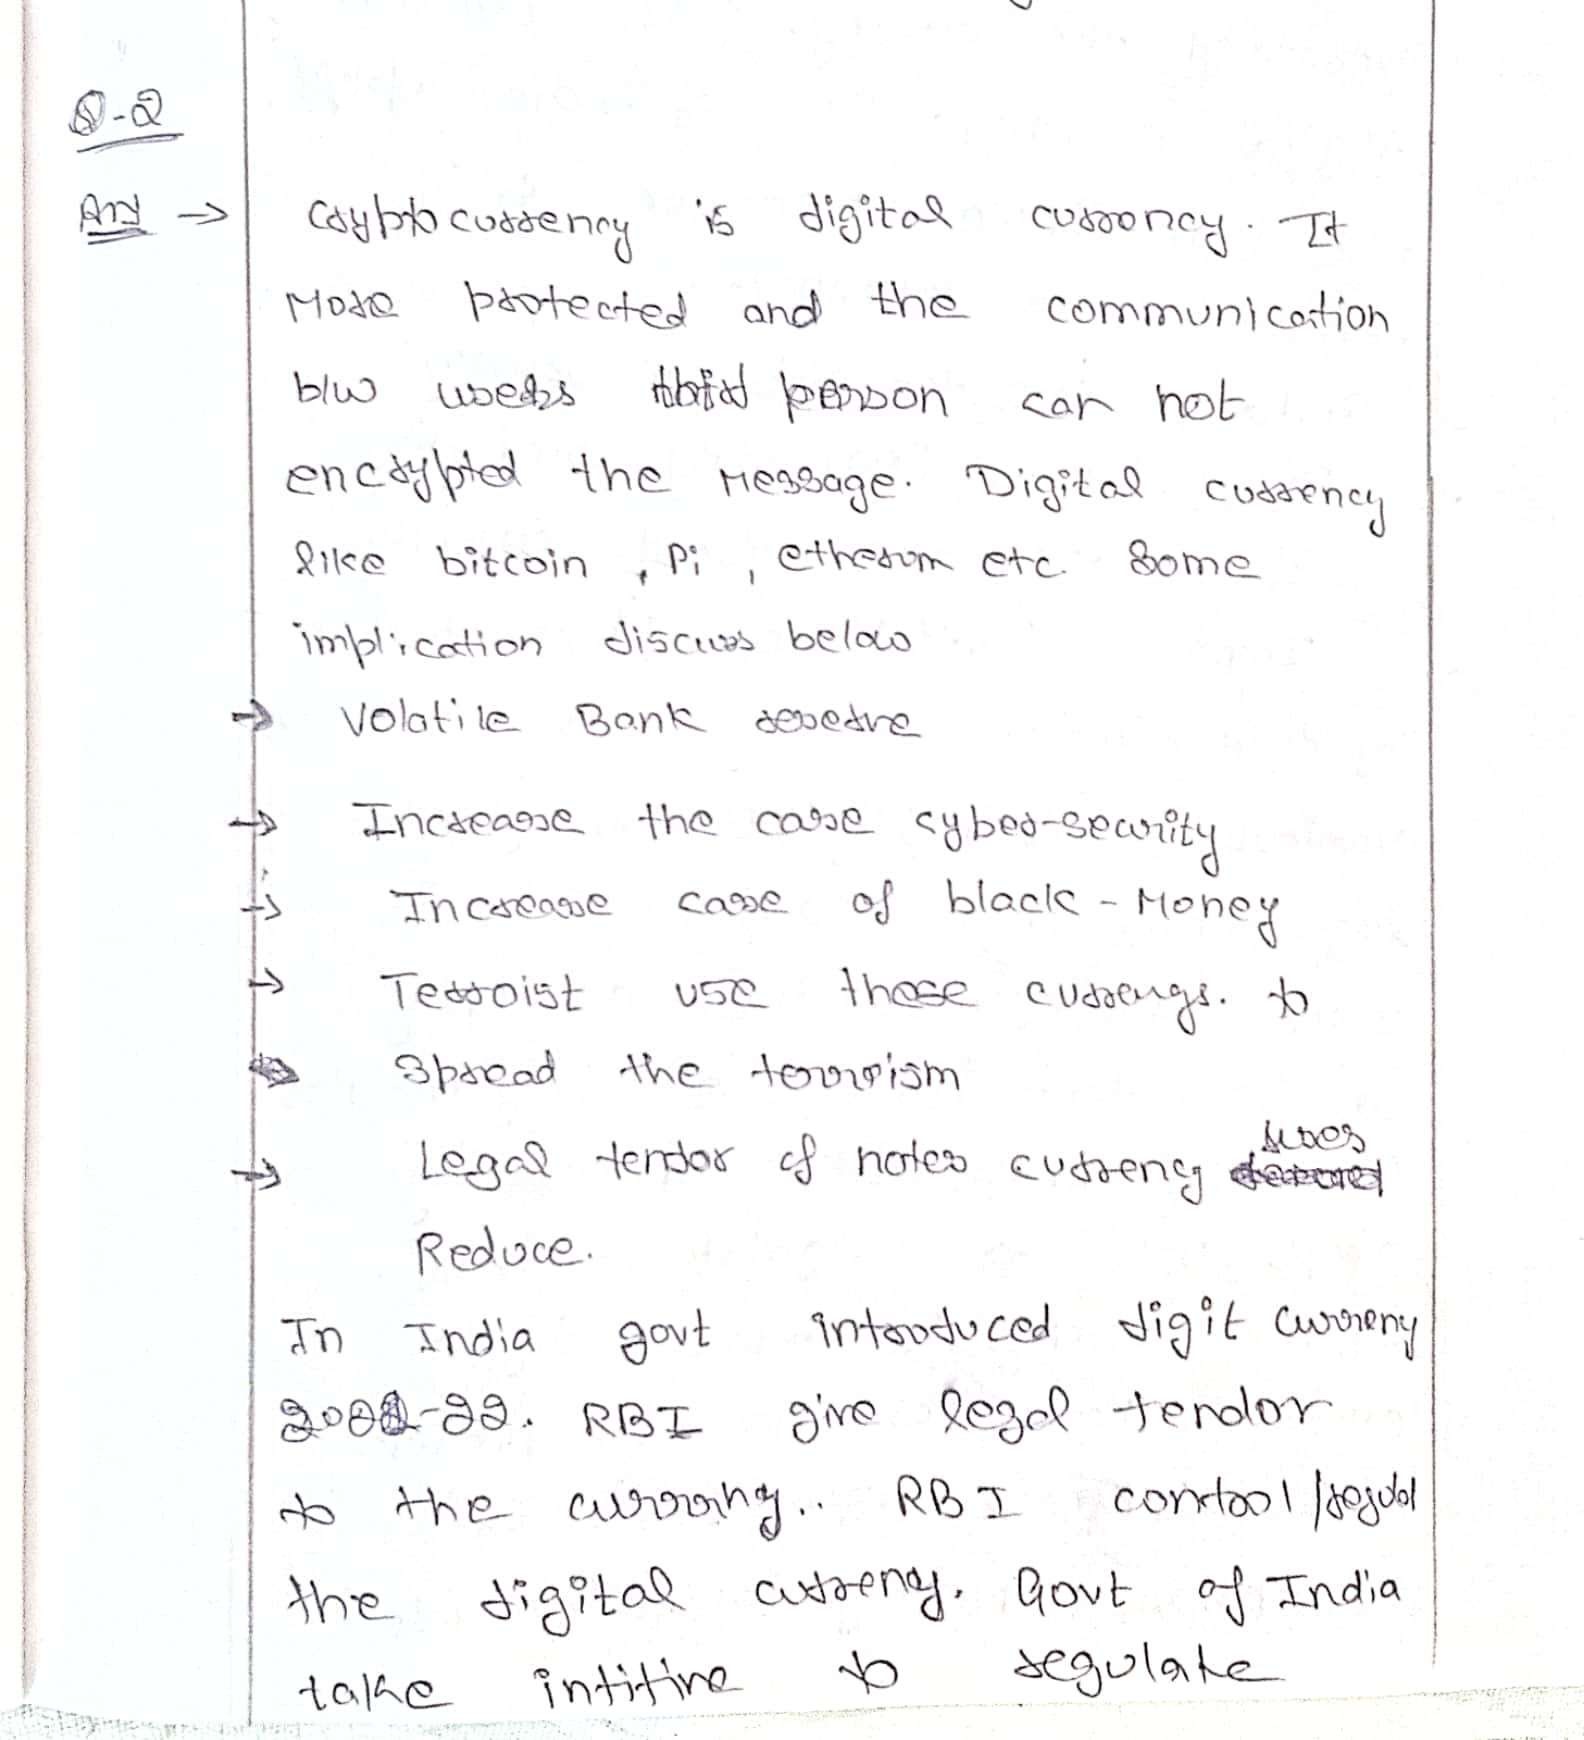 Q-2
Ans → Cryptocurrency is digital currency. It
More protected and the communication
b/w users third person can not
encrypted the Message. Digital currency
like bitcoin, Pi, etherum etc. Some
implication discuss below
→ Volatile Bank reserve
→ Increase the case cyber-security
→ Increase case of black-Money
→ Terroist use those to
Spread the terrorism
→ Legal tendor of notes currency
Reduce.
In India govt introduced digit curreny
RBI give legal tendor
to the RBI control/
the digital curreny. Govt of India
take intitive to regulate